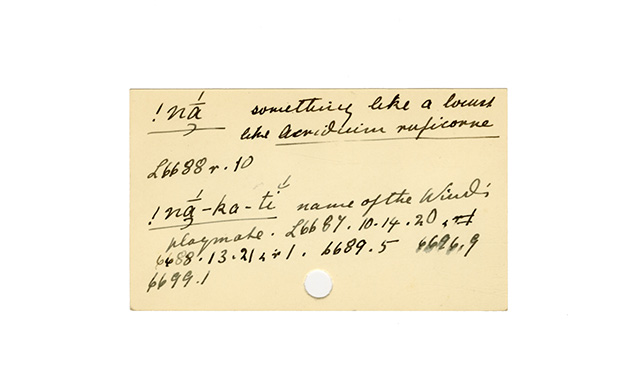 !nā́ something like a locust
like Acridium ruficorne
L6688 r. 10
!nā́-ka-ti name of the Wind's
playmate. L6687.10.14.20
6688.13.21 & r 1. 6689.5 6696.9
6699.1